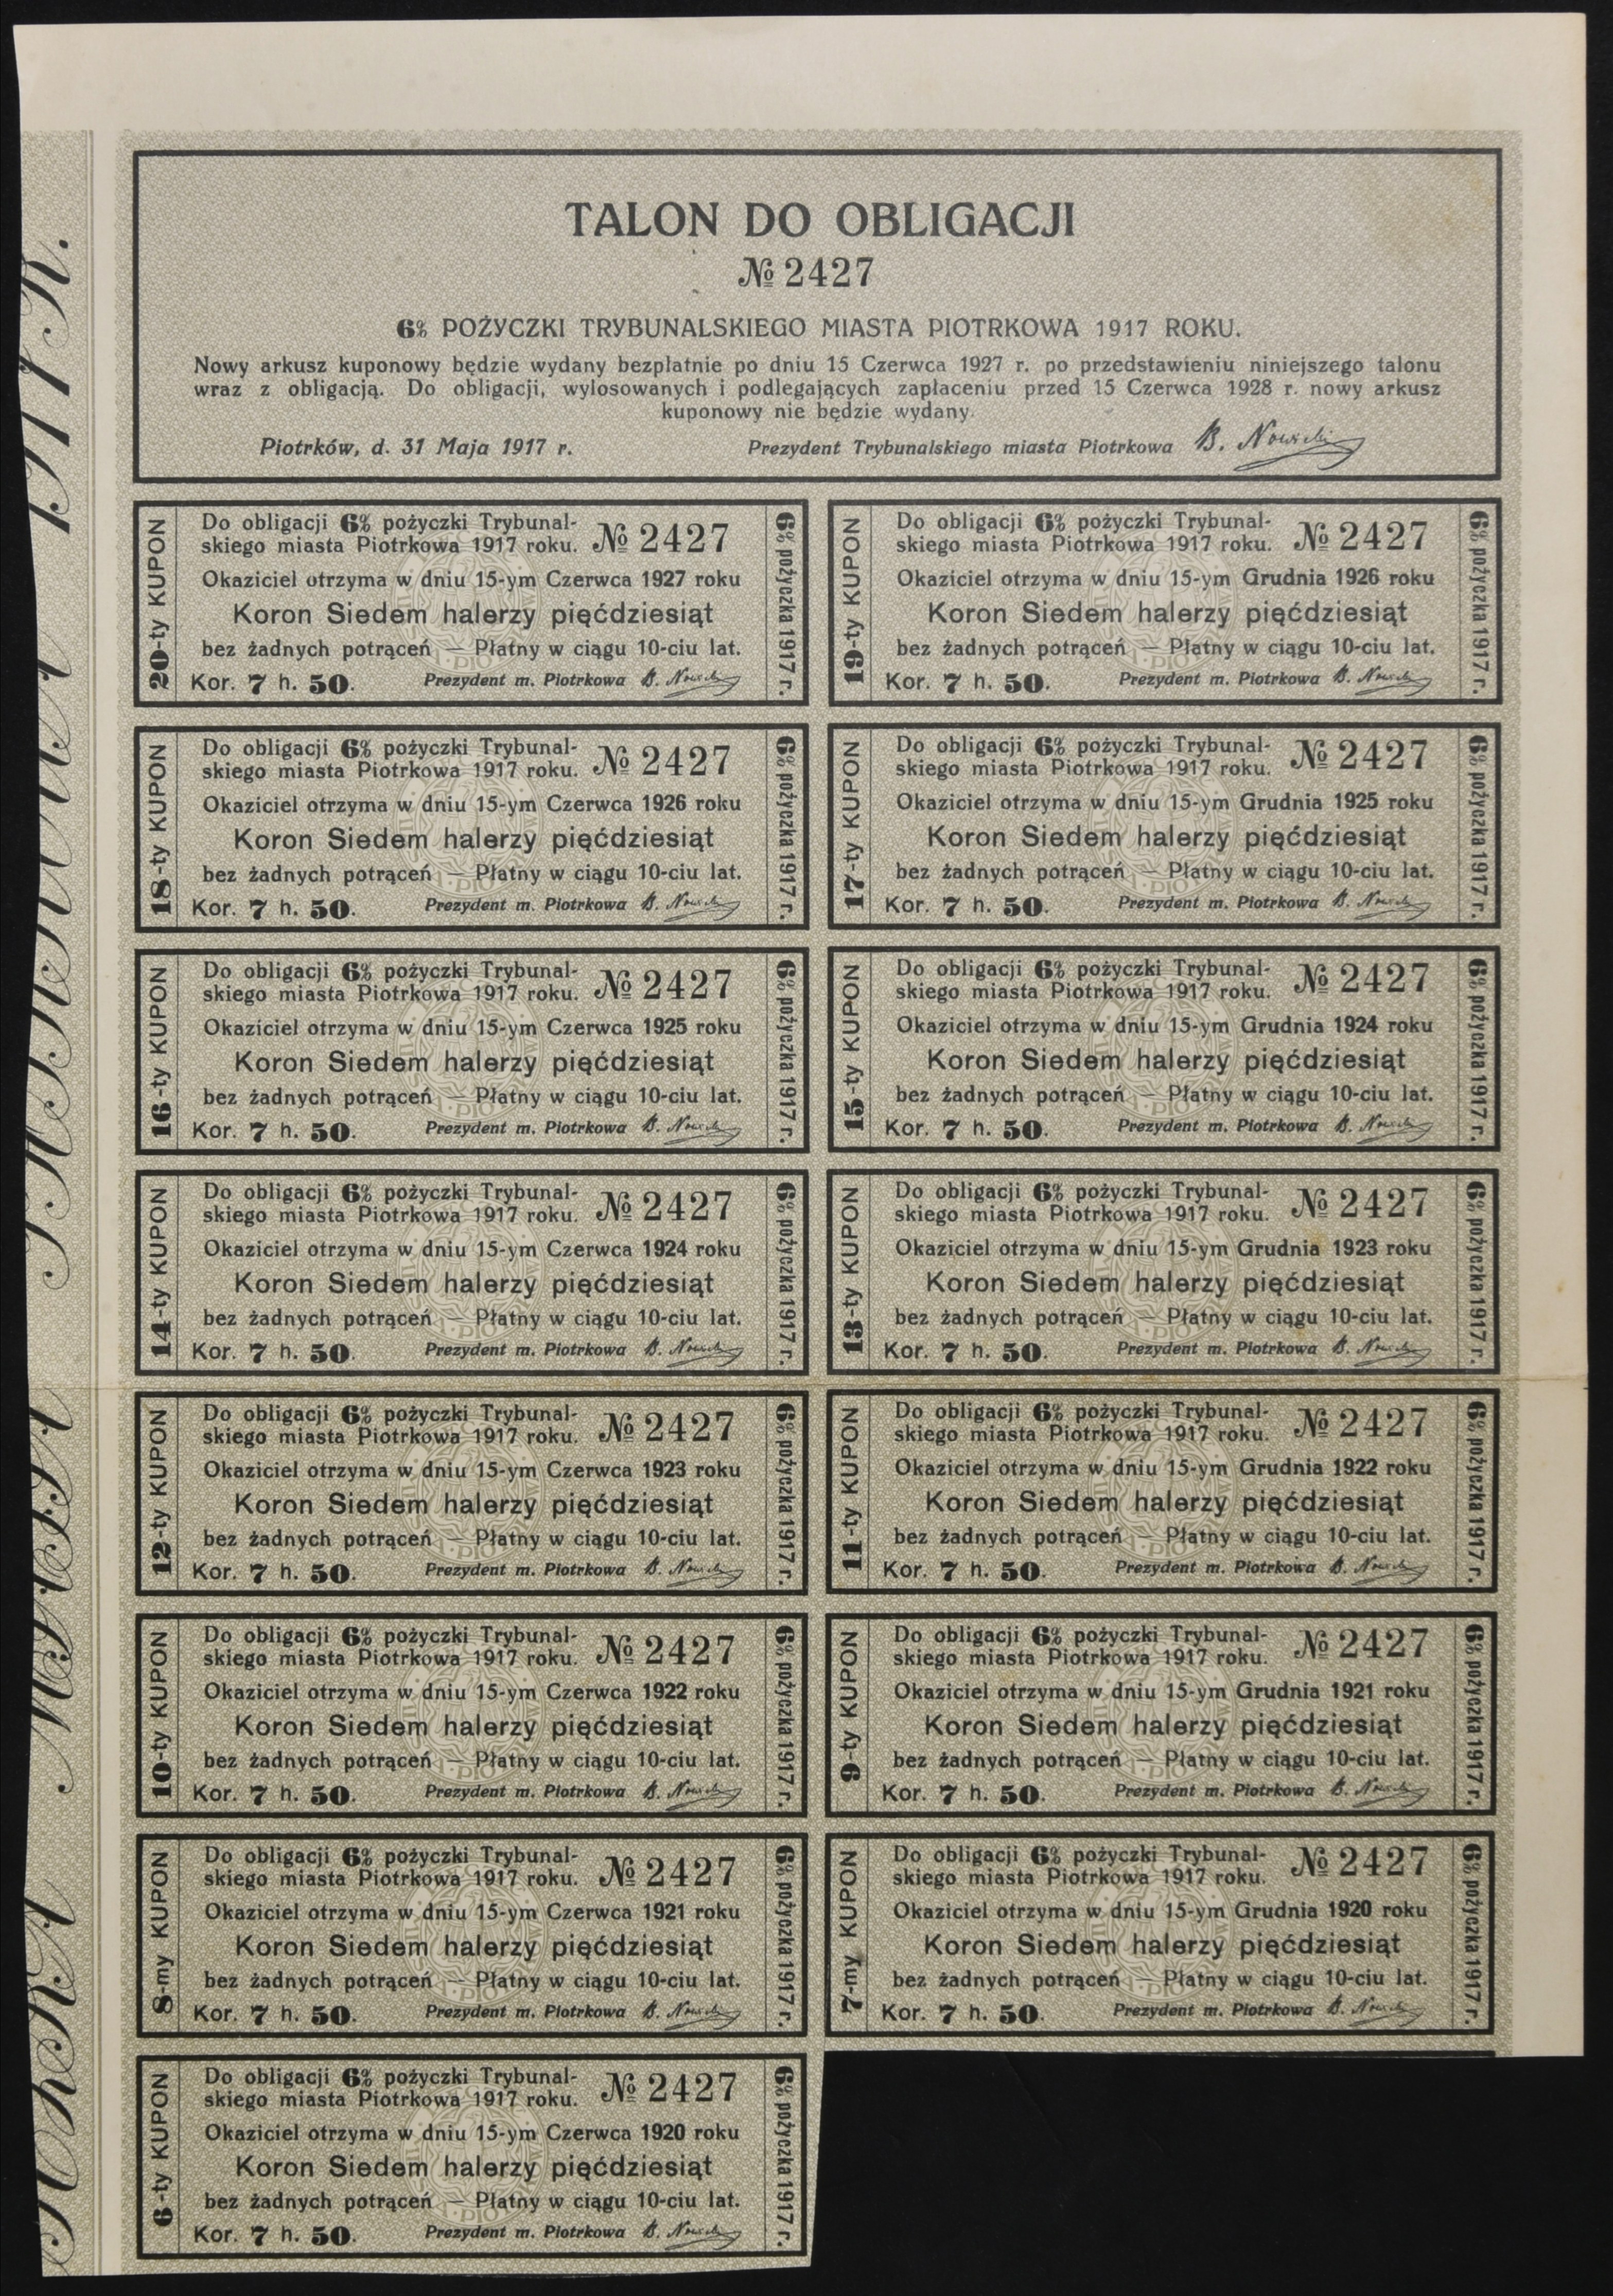 TALON DO OBLIGACJI
№ 2427
6% POŻYCZKI TRYBUNALSKIEGO MIASTA PIOTRKOWA 1917 ROKU.
Nowy arkusz kuponowy będzie wydany bezpłatnie po dniu 15 Czerwca 1927 r. po przedstawieniu niniejszego talonu
wraz z obligacją. Do obligacji, wylosowanych i podlegających zapłaceniu przed 15 Czerwca 1928 r. nowy arkusz
kuponowy nie będzie wydany.
Piotrków, d. 31 Maja 1917 r.
Prezydent Trybunalskiego miasta Piotrkowa B. Nowicki
20-ty KUPON
Do obligacji 6% pożyczki Trybunal-
skiego miasta Piotrkowa 1917 roku. № 2427
Okaziciel otrzyma w dniu 15-ym Czerwca 1927 roku
Koron Siedem halerzy pięćdziesiąt
bez żadnych potrąceń — Płatny w ciągu 10-ciu lat.
Kor. 7 h. 50. Prezydent m. Piotrkowa B. Nowicki
6% pożyczka 1917 r.
19-ty KUPON
Do obligacji 6% pożyczki Trybunal-
skiego miasta Piotrkowa 1917 roku. № 2427
Okaziciel otrzyma w dniu 15-ym Grudnia 1926 roku
Koron Siedem halerzy pięćdziesiąt
bez żadnych potrąceń — Płatny w ciągu 10-ciu lat.
Kor. 7 h. 50. Prezydent m. Piotrkowa B. Nowicki
6% pożyczka 1917 r.
18-ty KUPON
Do obligacji 6% pożyczki Trybunal-
skiego miasta Piotrkowa 1917 roku. № 2427
Okaziciel otrzyma w dniu 15-ym Czerwca 1926 roku
Koron Siedem halerzy pięćdziesiąt
bez żadnych potrąceń — Płatny w ciągu 10-ciu lat.
Kor. 7 h. 50. Prezydent m. Piotrkowa B. Nowicki
6% pożyczka 1917 r.
17-ty KUPON
Do obligacji 6% pożyczki Trybunal-
skiego miasta Piotrkowa 1917 roku. № 2427
Okaziciel otrzyma w dniu 15-ym Grudnia 1925 roku
Koron Siedem halerzy pięćdziesiąt
bez żadnych potrąceń — Płatny w ciągu 10-ciu lat.
Kor. 7 h. 50. Prezydent m. Piotrkowa B. Nowicki
6% pożyczka 1917 r.
16-ty KUPON
Do obligacji 6% pożyczki Trybunal-
skiego miasta Piotrkowa 1917 roku. № 2427
Okaziciel otrzyma w dniu 15-ym Czerwca 1925 roku
Koron Siedem halerzy pięćdziesiąt
bez żadnych potrąceń — Płatny w ciągu 10-ciu lat.
Kor. 7 h. 50. Prezydent m. Piotrkowa B. Nowicki
6% pożyczka 1917 r.
15-ty KUPON
Do obligacji 6% pożyczki Trybunal-
skiego miasta Piotrkowa 1917 roku. № 2427
Okaziciel otrzyma w dniu 15-ym Grudnia 1924 roku
Koron Siedem halerzy pięćdziesiąt
bez żadnych potrąceń — Płatny w ciągu 10-ciu lat.
Kor. 7 h. 50. Prezydent m. Piotrkowa B. Nowicki
6% pożyczka 1917 r.
14-ty KUPON
Do obligacji 6% pożyczki Trybunal-
skiego miasta Piotrkowa 1917 roku. № 2427
Okaziciel otrzyma w dniu 15-ym Czerwca 1924 roku
Koron Siedem halerzy pięćdziesiąt
bez żadnych potrąceń — Płatny w ciągu 10-ciu lat.
Kor. 7 h. 50. Prezydent m. Piotrkowa B. Nowicki
6% pożyczka 1917 r.
13-ty KUPON
Do obligacji 6% pożyczki Trybunal-
skiego miasta Piotrkowa 1917 roku. № 2427
Okaziciel otrzyma w dniu 15-ym Grudnia 1923 roku
Koron Siedem halerzy pięćdziesiąt
bez żadnych potrąceń — Płatny w ciągu 10-ciu lat.
Kor. 7 h. 50. Prezydent m. Piotrkowa B. Nowicki
6% pożyczka 1917 r.
12-ty KUPON
Do obligacji 6% pożyczki Trybunal-
skiego miasta Piotrkowa 1917 roku. № 2427
Okaziciel otrzyma w dniu 15-ym Czerwca 1923 roku
Koron Siedem halerzy pięćdziesiąt
bez żadnych potrąceń — Płatny w ciągu 10-ciu lat.
Kor. 7 h. 50. Prezydent m. Piotrkowa B. Nowicki
6% pożyczka 1917 r.
11-ty KUPON
Do obligacji 6% pożyczki Trybunal-
skiego miasta Piotrkowa 1917 roku. № 2427
Okaziciel otrzyma w dniu 15-ym Grudnia 1922 roku
Koron Siedem halerzy pięćdziesiąt
bez żadnych potrąceń — Płatny w ciągu 10-ciu lat.
Kor. 7 h. 50. Prezydent m. Piotrkowa B. Nowicki
6% pożyczka 1917 r.
10-ty KUPON
Do obligacji 6% pożyczki Trybunal-
skiego miasta Piotrkowa 1917 roku. № 2427
Okaziciel otrzyma w dniu 15-ym Czerwca 1922 roku
Koron Siedem halerzy pięćdziesiąt
bez żadnych potrąceń — Płatny w ciągu 10-ciu lat.
Kor. 7 h. 50. Prezydent m. Piotrkowa B. Nowicki
6% pożyczka 1917 r.
9-ty KUPON
Do obligacji 6% pożyczki Trybunal-
skiego miasta Piotrkowa 1917 roku. № 2427
Okaziciel otrzyma w dniu 15-ym Grudnia 1921 roku
Koron Siedem halerzy pięćdziesiąt
bez żadnych potrąceń — Płatny w ciągu 10-ciu lat.
Kor. 7 h. 50. Prezydent m. Piotrkowa B. Nowicki
6% pożyczka 1917 r.
8-my KUPON
Do obligacji 6% pożyczki Trybunal-
skiego miasta Piotrkowa 1917 roku. № 2427
Okaziciel otrzyma w dniu 15-ym Czerwca 1921 roku
Koron Siedem halerzy pięćdziesiąt
bez żadnych potrąceń — Płatny w ciągu 10-ciu lat.
Kor. 7 h. 50. Prezydent m. Piotrkowa B. Nowicki
6% pożyczka 1917 r.
7-my KUPON
Do obligacji 6% pożyczki Trybunal-
skiego miasta Piotrkowa 1917 roku. № 2427
Okaziciel otrzyma w dniu 15-ym Grudnia 1920 roku
Koron Siedem halerzy pięćdziesiąt
bez żadnych potrąceń — Płatny w ciągu 10-ciu lat.
Kor. 7 h. 50. Prezydent m. Piotrkowa B. Nowicki
6% pożyczka 1917 r.
6-ty KUPON
Do obligacji 6% pożyczki Trybunal-
skiego miasta Piotrkowa 1917 roku. № 2427
Okaziciel otrzyma w dniu 15-ym Czerwca 1920 roku
Koron Siedem halerzy pięćdziesiąt
bez żadnych potrąceń — Płatny w ciągu 10-ciu lat.
Kor. 7 h. 50. Prezydent m. Piotrkowa B. Nowicki
6% pożyczka 1917 r.